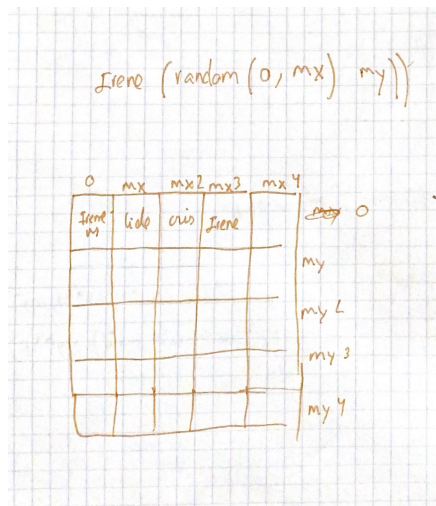 Irene (random (0, mx) my))
0 mx mx2 mx3 mx4
Irene M lide cris Irene 0
my
my 2
my 3
my 4